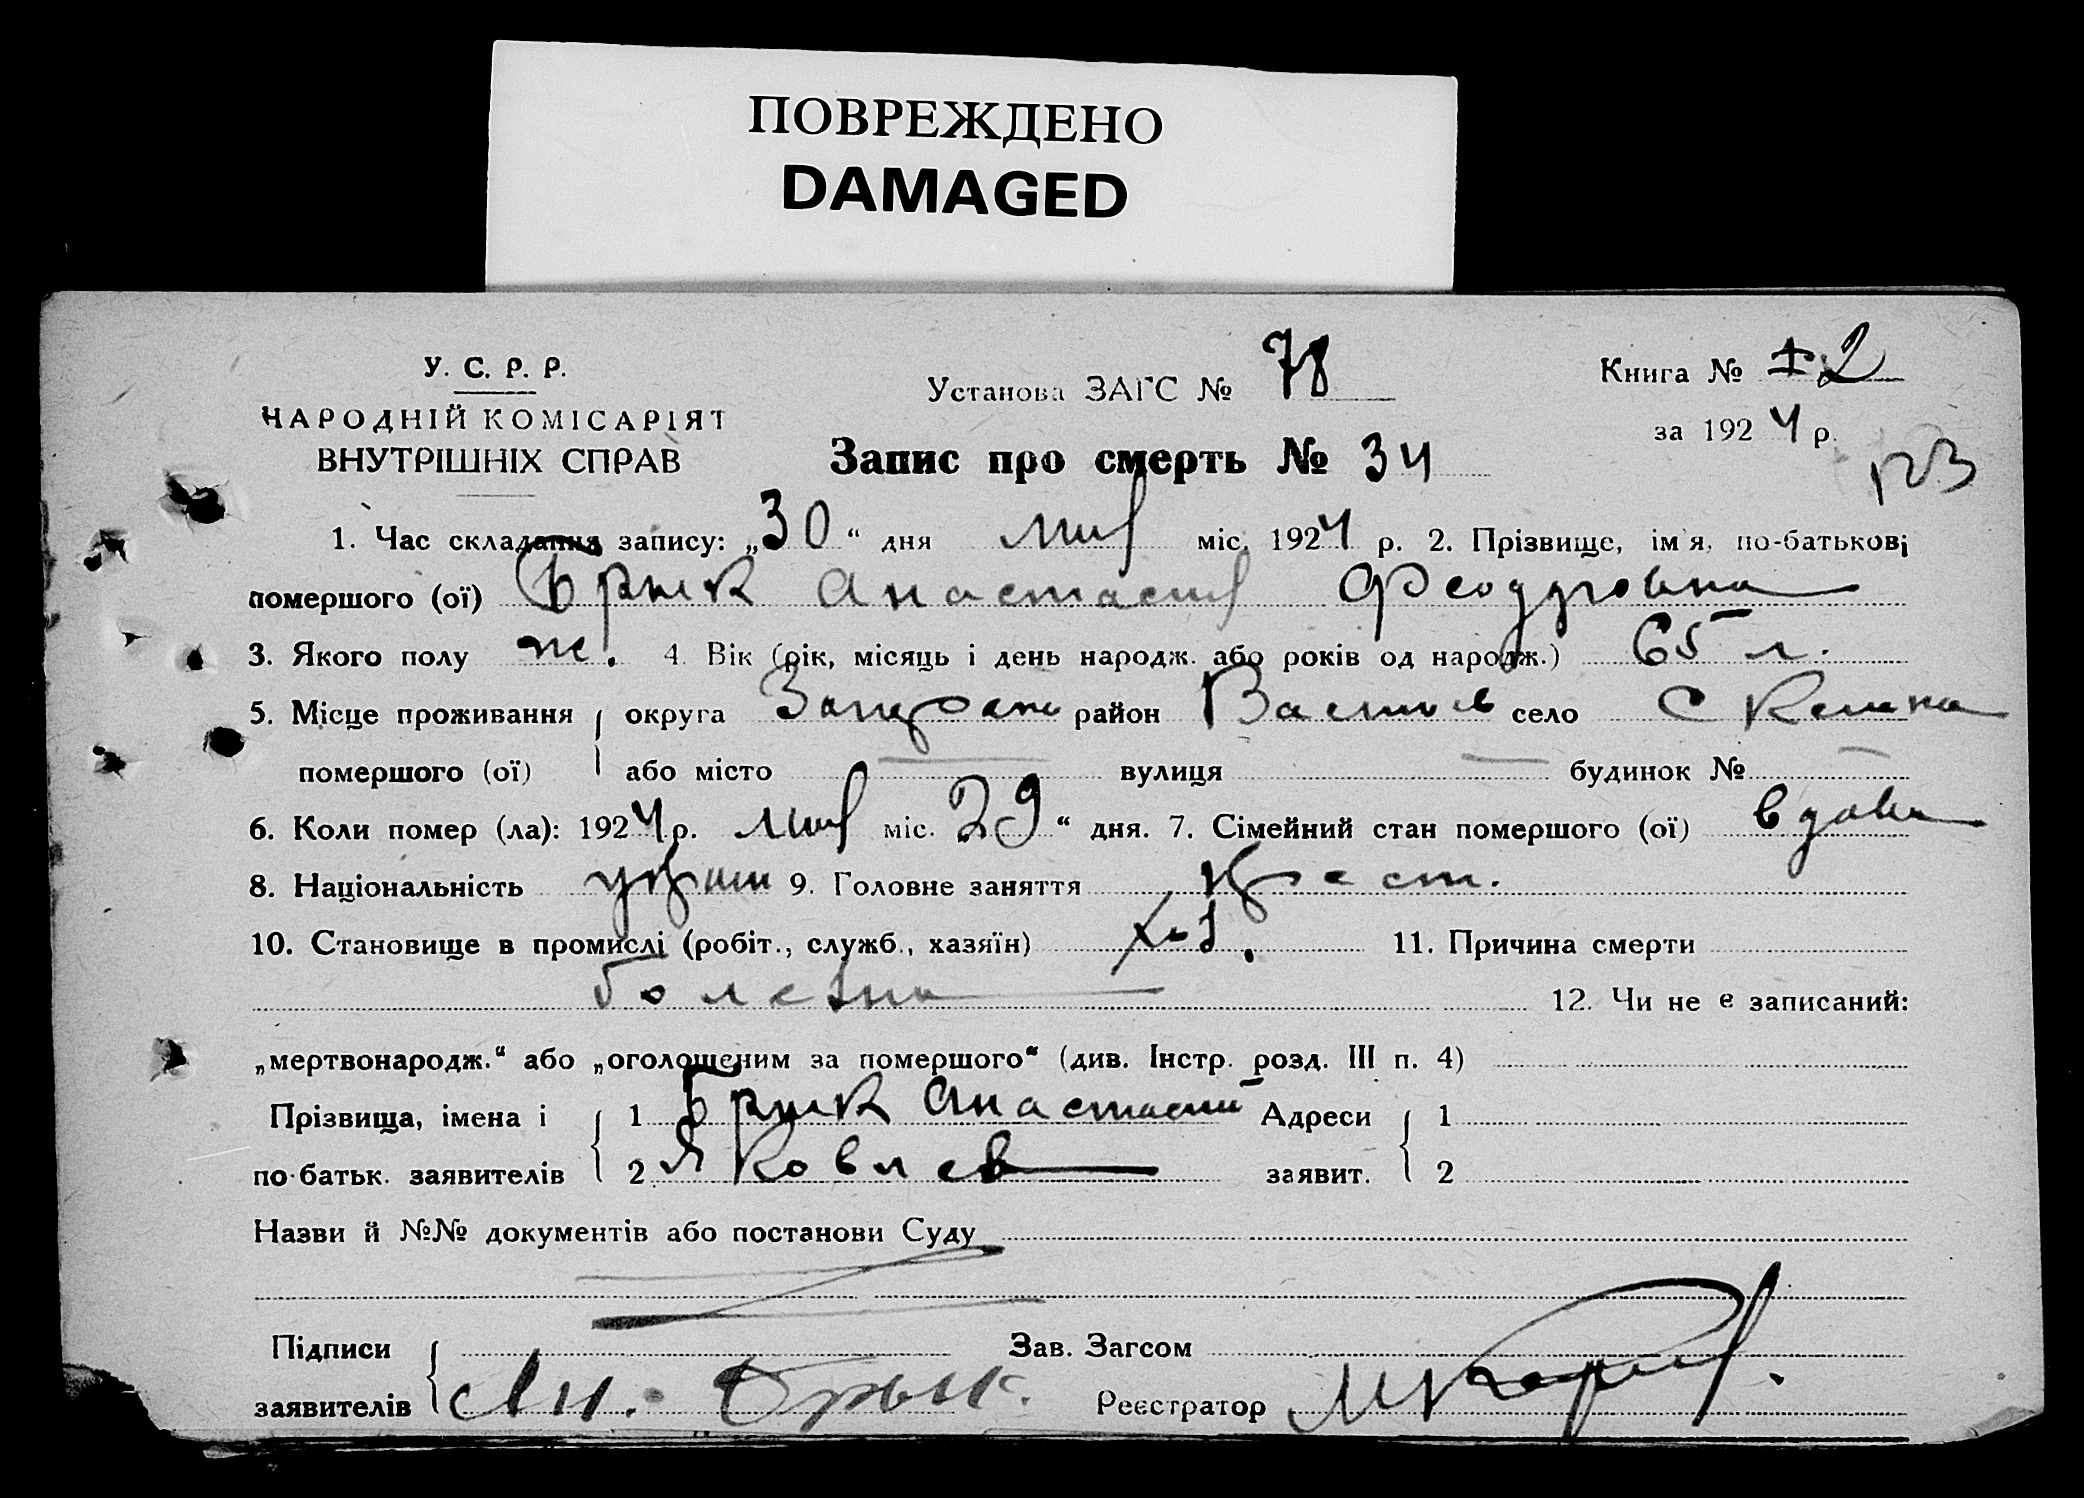 ПОВРЕЖДЕНО
DAMAGED
У. С. Р. Р.
НАРОДНІЙ КОМІСАРІЯТ
ВНУТРІШНІХ СПРАВ
Установа ЗАГС № 78
Книга № 2
за 1924 р.
Запис про смерть № 34
1. Час складання запису: „30“ дня міс. 1924 р. 2. Прізвище, ім'я, по-батькові
помершого (ої) Брык Анастасия Феодоровна
3. Якого полу ж. 4. Вік (рік, місяць і день народж. або років од народж.) 65 л.
5. Місце проживання округа район село
помершого (ої) або місто — вулиця — будинок № —
6. Коли помер (ла): 1924 р. міс. 29“ дня. 7. Сімейний стан помершого (ої) вдова
8. Національність 9. Головне заняття крест.
10. Становище в промислі (робіт., служб., хазяїн) хоз. 11. Причина смерти
12. Чи не є записаний:
„мертвонародж.“ або „оголошеним за помершого“ (див. Інстр. розд. III п. 4)
Прізвища, імена і 1 Брык Анастасий Адреси 1
по-батьк. заявителів 2 Яковлев заявит. 2
Назви й №№ документів або постанови Суду
Підписи Зав. Загсом
заявителів Ан. Брык. Реєстратор